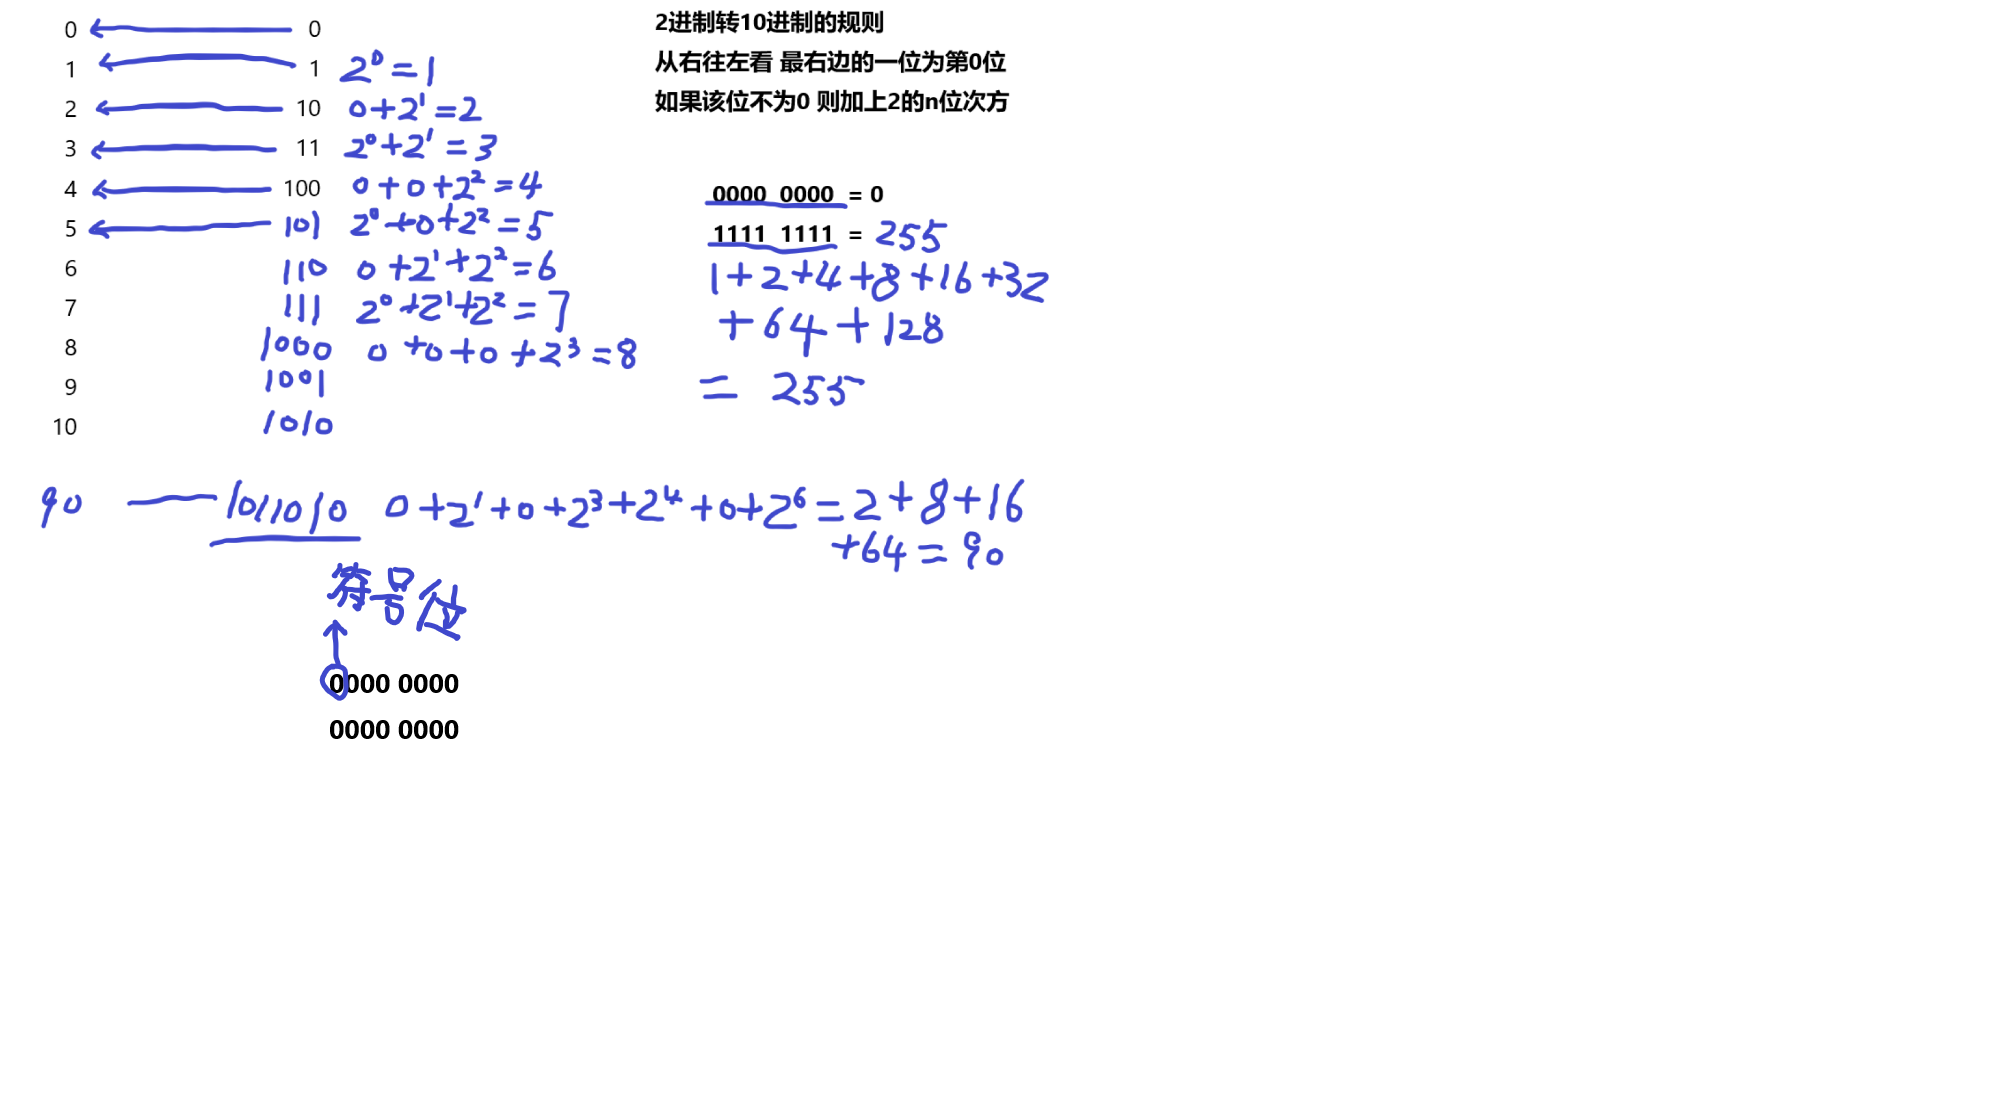 0 0
1 1 2⁰=1
2 10 0+2¹=2
3 11 2⁰+2¹=3
4 100 0+0+2²=4
5 101 2⁰+0+2²=5
6 110 0+2¹+2²=6
7 111 2⁰+2¹+2²=7
8 1000 0+0+0+2³=8
9 1001
10 1010
2进制转10进制的规则
从右往左看 最右边的一位为第0位
如果该位不为0 则加上2的n位次方
0000 0000 = 0
1111 1111 = 255
1+2+4+8+16+32
+64+128
= 255
90 1011010 0+2¹+0+2³+2⁴+0+2⁶=2+8+16
+64=90
符号位
0000 0000
0000 0000